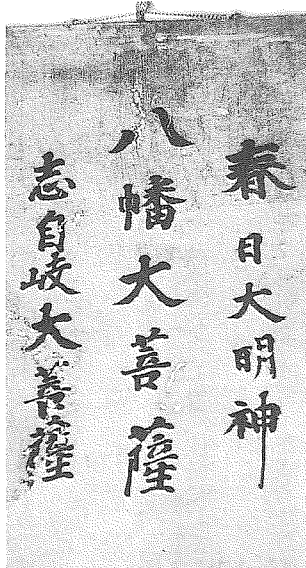 春日大明神
八幡大菩薩
志自岐大菩薩